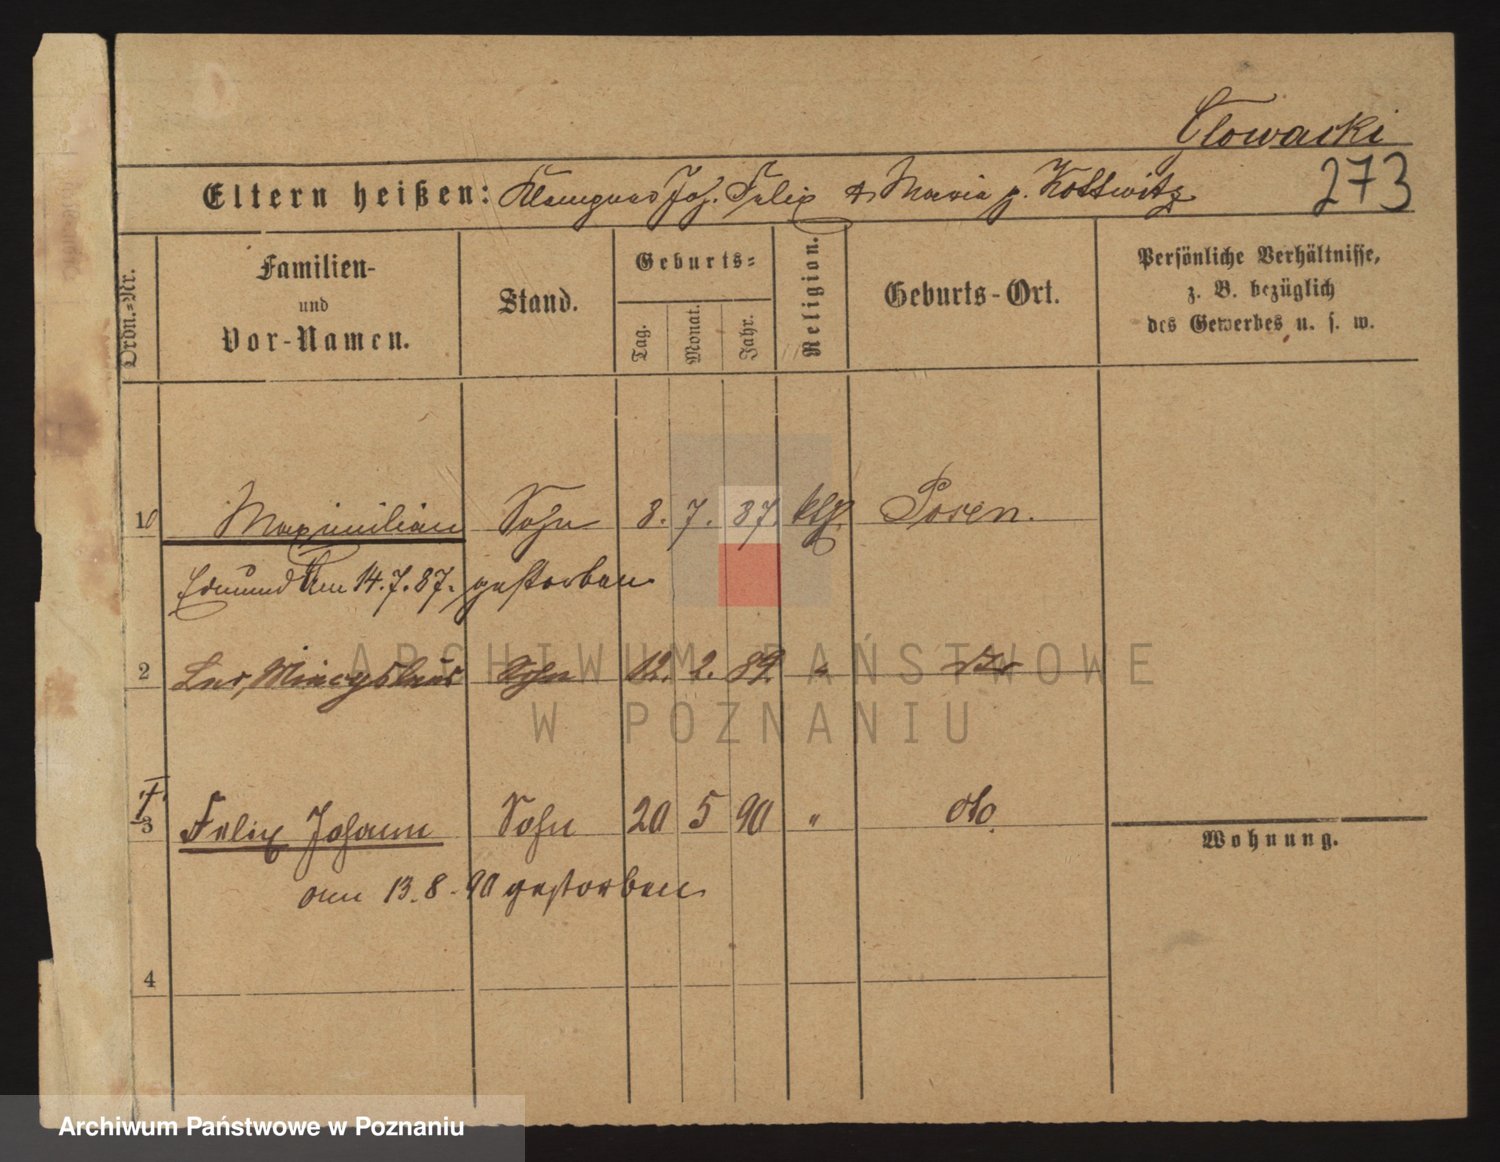 Cłowacki
Eltern heißen: Klempner Joh. Felix & Maria g. Kottwitz
273
Ordn.=Nr.
Familien-
und
Vor-Namen.
Stand.
Geburts=
Tag.
Monat.
Jahr.
Religion.
Geburts-Ort.
Persönliche Verhältnisse,
z. B. bezüglich
des Gewerbes u. s. w.
1 Maximilian Sohn 8. 7. 87. klg. Posen.
Edmund am 14.7.87. gestorben
2 Leo, Miecyslaus Sohn 12. 2. 89. " do
† 3 Felix Johann Sohn 20 5 90 " do.
am 13.8.90 gestorben
Wohnung.
4
ARCHIWUM PAŃSTWOWE
W POZNANIU
Archiwum Państwowe w Poznaniu